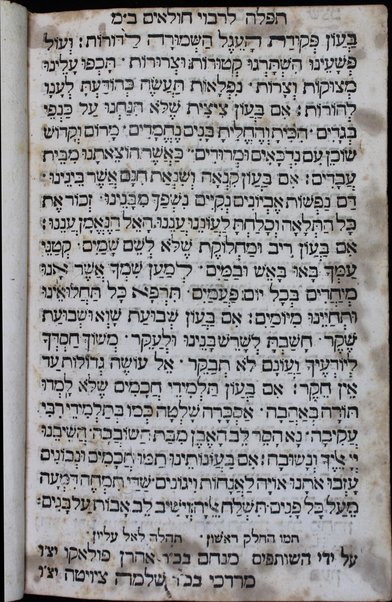 תפלה לרבוי חולאים בימ
בַּעֲוֹן פְּקוּדַת הָעֵגֶל הַשְּׁמוּרָה לְדוֹרוֹת: וְעוֹל
פְּשָׁעֵינוּ הִשְׁתָּרְגוּ קְטוּרוֹת וּצְרוּרוֹת · תְּכוּפוֹ עָלֵינוּ
מְצוּקוֹת וְצָרוֹת · נִפְלָאוֹת תַּעֲשֶׂה בְּהוֹדַעַת לְעָנוּ
לְהוֹרוֹת: אִם בַּעֲוֹן צִיצִית שֶׁלֹּא הִנַּחְנוּ עַל כַּנְפֵי
בְגָדִים · הִכִּיתָ וְהֶחֱלִיתָ בָּנִים נֶחְמָדִים · מָרוֹם וְקָדוֹשׁ
שׁוֹכֵן עִם נִדְכָּאִים וּמְרוּדִים · כַּאֲשֶׁר הוֹצֵאתָנוּ מִבֵּית
עֲבָדִים: אִם בַּעֲוֹן קִנְאָה וְשִׂנְאַת חִנָּם אֲשֶׁר בֵּינֵינוּ ·
דַּם נַפְשׁוֹת אֶבְיוֹנִים נְקִיִּים נִשְׁפַּךְ מִבָּנֵינוּ · זְכוֹר אֶת
כָּל הַתְּלָאָה וְסָלַחְתָּ לַעֲוֹנֵנוּ עֲנֵנוּ · הָאֵל הַנֶּאֱמָן עֲנֵנוּ:
אִם בַּעֲוֹן רִיב וּמַחֲלוֹקֶת שֶׁלֹּא לְשֵׁם שָׁמַיִם · קְטַנֵּי
עַמְּךָ בָּאוּ בָאֵשׁ וּבַמַּיִם · לְמַעַן שִׁמְךָ אֲשֶׁר אָנוּ
מְיַחֲדִים בְּכָל יוֹם פַּעֲמַיִם · תִּרְפָּא כָּל תַּחֲלוּאֵינוּ
וּתְחַיֵּינוּ מִיּוֹמָיִם: אִם בַּעֲוֹן שְׁבוּעַת שָׁוְא וּשְׁבוּעַת
שֶׁקֶר · חָשַׁבְתָּ לְשָׁרֵשׁ בָּנֵינוּ וּלְעַקֵּר · מְשׁוֹךְ חַסְדְּךָ
לְיוֹדְעֶיךָ וַעֲוֹנָם לֹא תְבַקֵּר · אֵל עוֹשֶׂה גְדוֹלוֹת עַד
אֵין חֵקֶר: אִם בַּעֲוֹן תַּלְמִידֵי חֲכָמִים שֶׁלֹּא לָמְדוּ
תּוֹרָה בְּאַהֲבָה · אַסְכָּרָה שָׁלְטָה כְּמוֹ בְּתַלְמִידֵי רַבִּי
עֲקִיבָה: נָא הָסֵר לֵב הָאֶבֶן מִבַּת הַשּׁוֹבֵבָה הֲשִׁיבֵנוּ
יְיָ אֵלֶיךָ וְנָשׁוּבָה: אִם בַּעֲוֹנוֹתֵינוּ תַּמּוּ חֲכָמִים וּנְבוֹנִים
עָזְבוּ אֹתָנוּ אוֹיָה לַאֲנָחוֹת וִיגוֹנִים · שַׁדַּי תִּמְחֶה דִמְעָה
מֵעַל כָּל פָּנִים · תִּשְׁלַח אֵלִיָּה וְיָשִׁיב לֵב אָבוֹת עַל בָּנִים:
תמו החלק ראשון · תהלה לאל עליון
על ידי השותפים מנחם בכ״ר אהרן פולאקו יצ״ו
מרדכי בכ״ר שלמה ציויטה יצ״ו